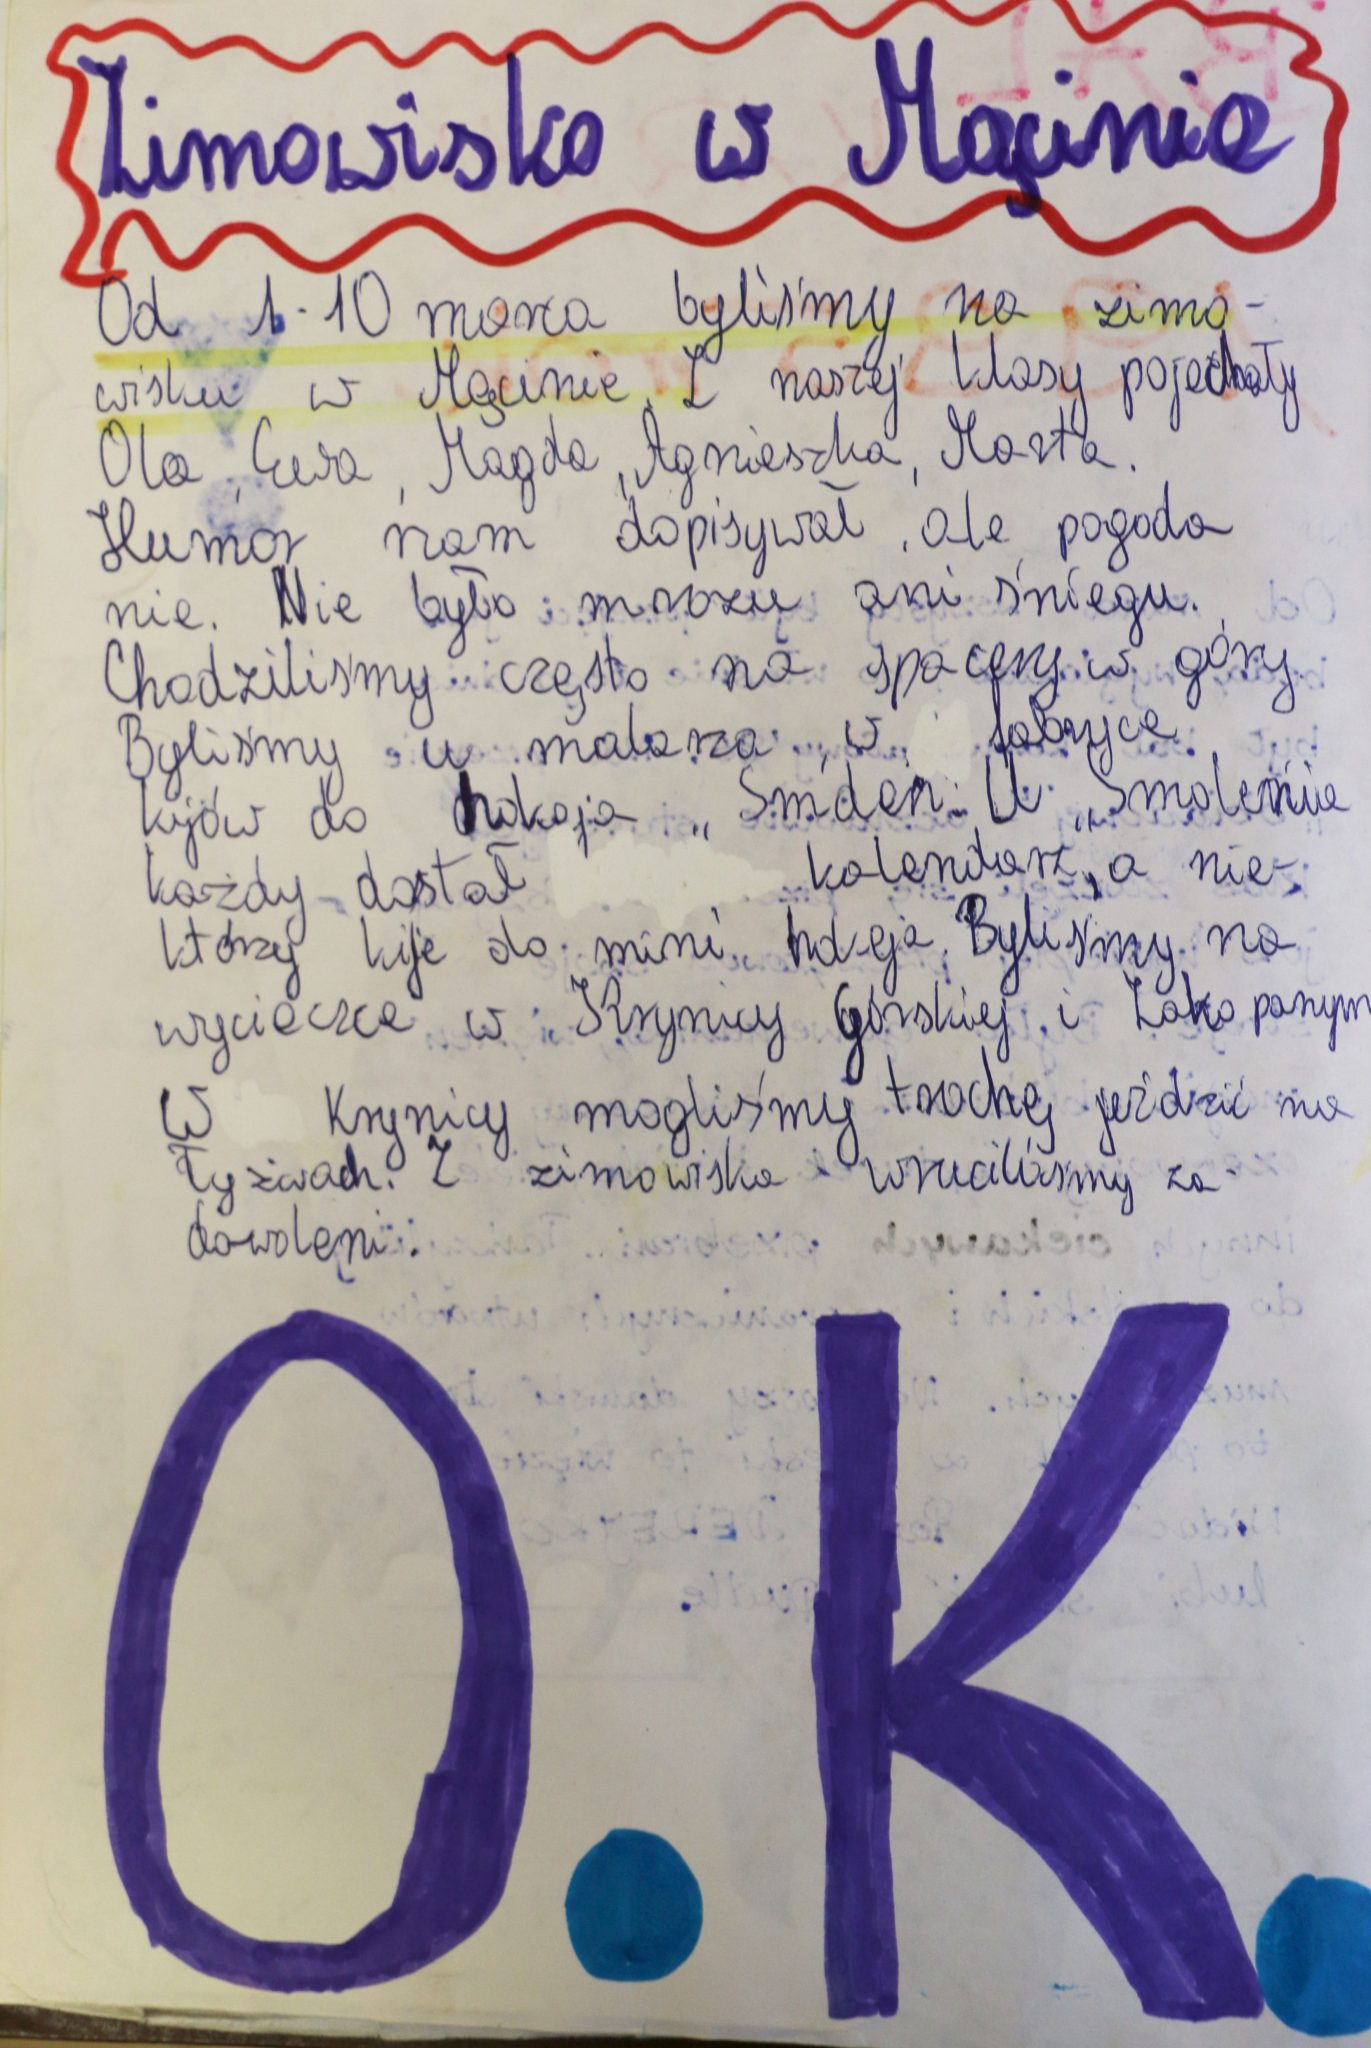 Zimowisko w Męcinie
Od 1-10 marca byliśmy na zimo-
wisku w Męcinie. Z naszej klasy pojechały
Ola, Ewa, Magda, Agnieszka, Marta.
Humor nam dopisywał, ale pogoda
nie. Nie było mrozu ani śniegu.
Chodziliśmy często na spacery w góry
Byliśmy u malarza, w fabryce
kijów do hokeja „Smdeń. U „Smolenia
każdy dostał kalendarz, a nie-
którzy kije do mini hokeja. Byliśmy na
wycieczce w Krynicy Górskiej i Zakopanym
W Krynicy mogliśmy trochę jeździć na
łyżwach. Z zimowiska wruciliśmy za-
dowoleni.
O.K.